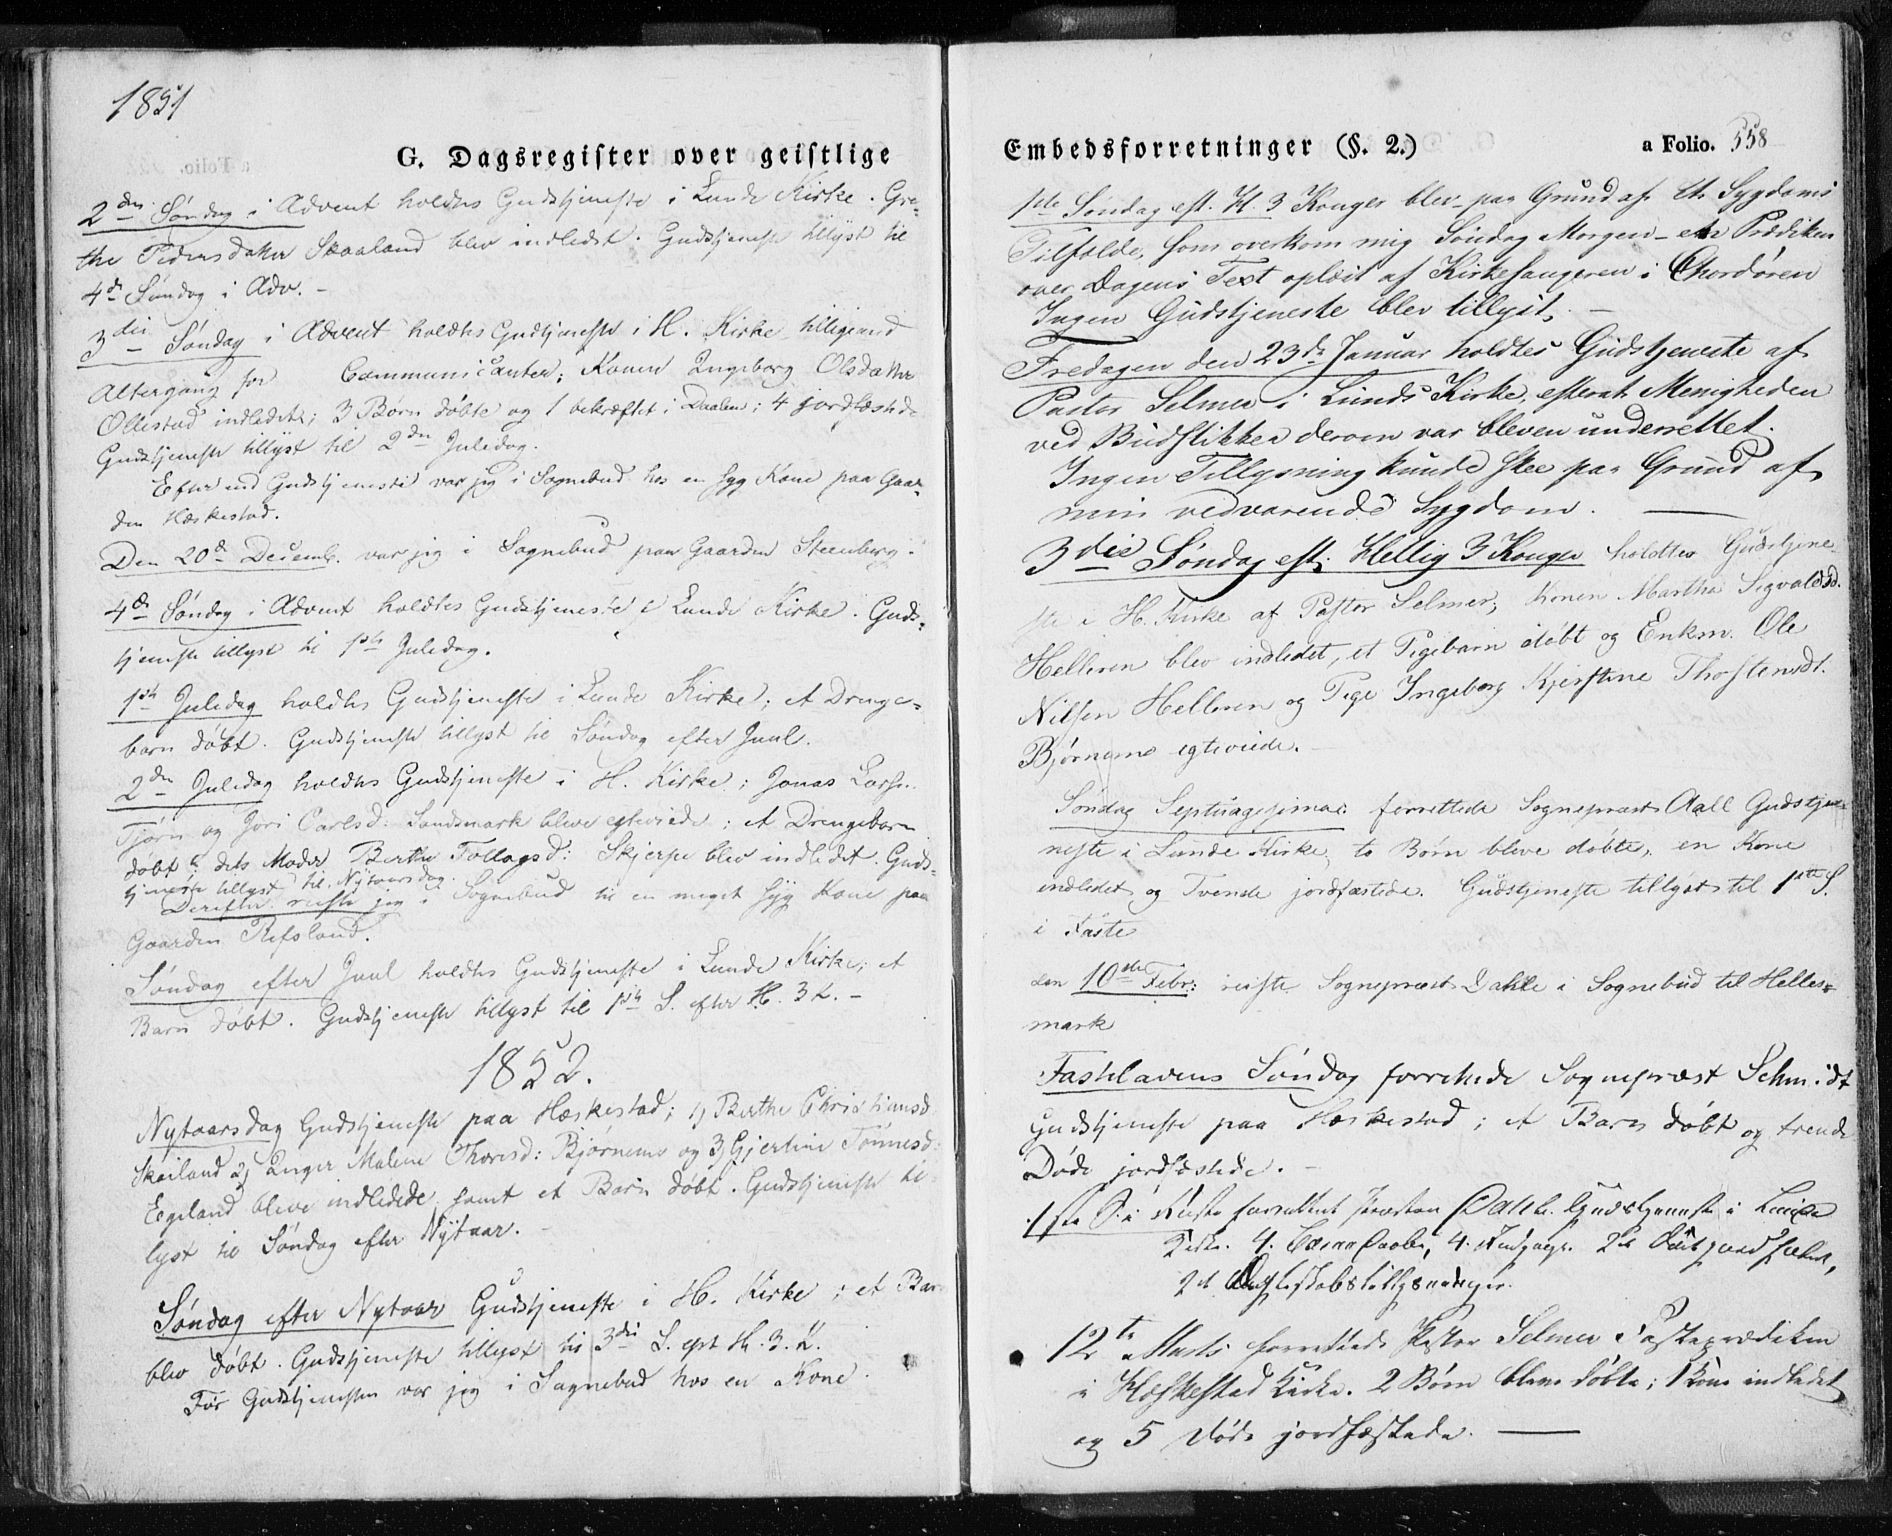 1851
G. Dagsregister over geistlige
2den Søndag i Advent holdtes Gudstjeneste i Lunde Kirke. Gre-
the Pedersdatter Skaaland blev indledet. Gudstjeneste tillyst til
4de Søndag i Adv. -
3die Søndag i Advent holdtes Gudstjeneste i H. Kirke tilligemed
Altergang for Communicanter; Konen Ingeborg Olsdatter
Ollestad indledet; 3 Børn døbte og 1 bekræftet i Daaben; 4 jordfæstede
Gudstjeneste tillyst til 2den Juledag.
Efter end Gudstjeneste var jeg i Sognebud hos en syg Kone paa Gaar-
den Hæskestad.
Den 20de Decemb. var jeg i Sognebud paa Gaarden Steenberg.
4de Søndag i Advent holdtes Gudstjeneste i Lunde Kirke. Guds-
tjeneste tillyst til 1ste Juledag.
1ste Juledag holdtes Gudstjeneste i Lunde Kirke; et Drenge-
barn døbt. Gudstjeneste tillyst til Søndag efter Juul.
2den Juledag holdtes Gudstjeneste i H. Kirke; Jonas Larss.
Tjørn og Jori Carlsd: Sandsmark bleve egteviede; et Drengebarn
døbt & dets Moder Berthe Tollagsd: Skjerpe blev indledet. Guds-
tjeneste tillyst til Nytaarsdag.
Derefter reiste jeg i Sognebud til en meget syg Kone paa
Gaarden Refsland.
Søndag efter Juul holdtes Gudstjeneste i Lunde Kirke; et
Barn døbt. Gudstjeneste tillyst til 1ste S. efter H. 3 K. -
1852.
Nytaarsdag Gudstjeneste paa Hæskestad; 1) Berthe Christiansd.
Skailand 2) Inger Malene Thoresd: Bjørnemo og 3) Gjertine Tønnesd:
Egeland bleve indledede samt et Barn døbt. Gudstjeneste til-
lyst til Søndag efter Nytaar. -
Søndag efter Nytaar Gudstjeneste i H. Kirke; et Barn
blev døbt. Gudstjeneste tillyst til 3die S. ept H. 3. K.
Før Gudstjenesten var jeg i Sognebud hos en Kone.
Embedsforretninger (§. 2.) a Folio. 558
1ste Søndag eft. H. 3 Konger blev paa Grund af et Sygdoms
Tilfælde, som overkom mig Søndag Morgen - en Prædiken
over Dagens Text oplæst af Kirkesangeren i Chordøren
Ingen Gudstjeneste blev tillyst. -
Fredagen den 23de Januar holdtes Gudstjeneste af
Pastor Selmer i Lunds Kirke, efterat Menigheden
ved Budstikken derom var bleven underrettet.
Ingen Tillysning kunde skee paa Grund af
min vedvarende Sygdom. -
3die Søndag eft. Hellig 3 Konger holdtes Gudstjene-
ste i H. Kirke af Pastor Selmer; Konen Martha Sigvaldsd.
Helleren blev indledet, et Pigebarn døbt og Enkm. Ole
Nilsen Helleren og Pige Ingeborg Kjerstine Thorstensdt.
Bjørnemo egteviede. -
Søndag Septuagesimae forrettede Sognepræst Aall Gudstje-
neste i Lunde Kirke, to Børn bleve døbte, en Kone
indledet og Tvende jordfæstede. Gudstjeneste tillyst til 1ste S.
i Faste
den 10de Febr: reiste Sognepræst Dahle i Sognebud til Helles-
mark
Fastelavens Søndag forrettede Sognepræst Schmidt
Gudstjeneste paa Hæskestad; et Barn døbt og trende
Døde jordfæstede. -
1ste S. i Faste forrettede Præsten Dahle Gudstjeneste i Lunde
Kirke. 4. 4. 2de jordfæstet,
2de
12te Marts forrettede Pastor Selmer Fasteprædiken
i Heskestad Kirke. 2 Børn bleve døbte; 1 Kone indledet
og 5 Døde jordfæstede. -